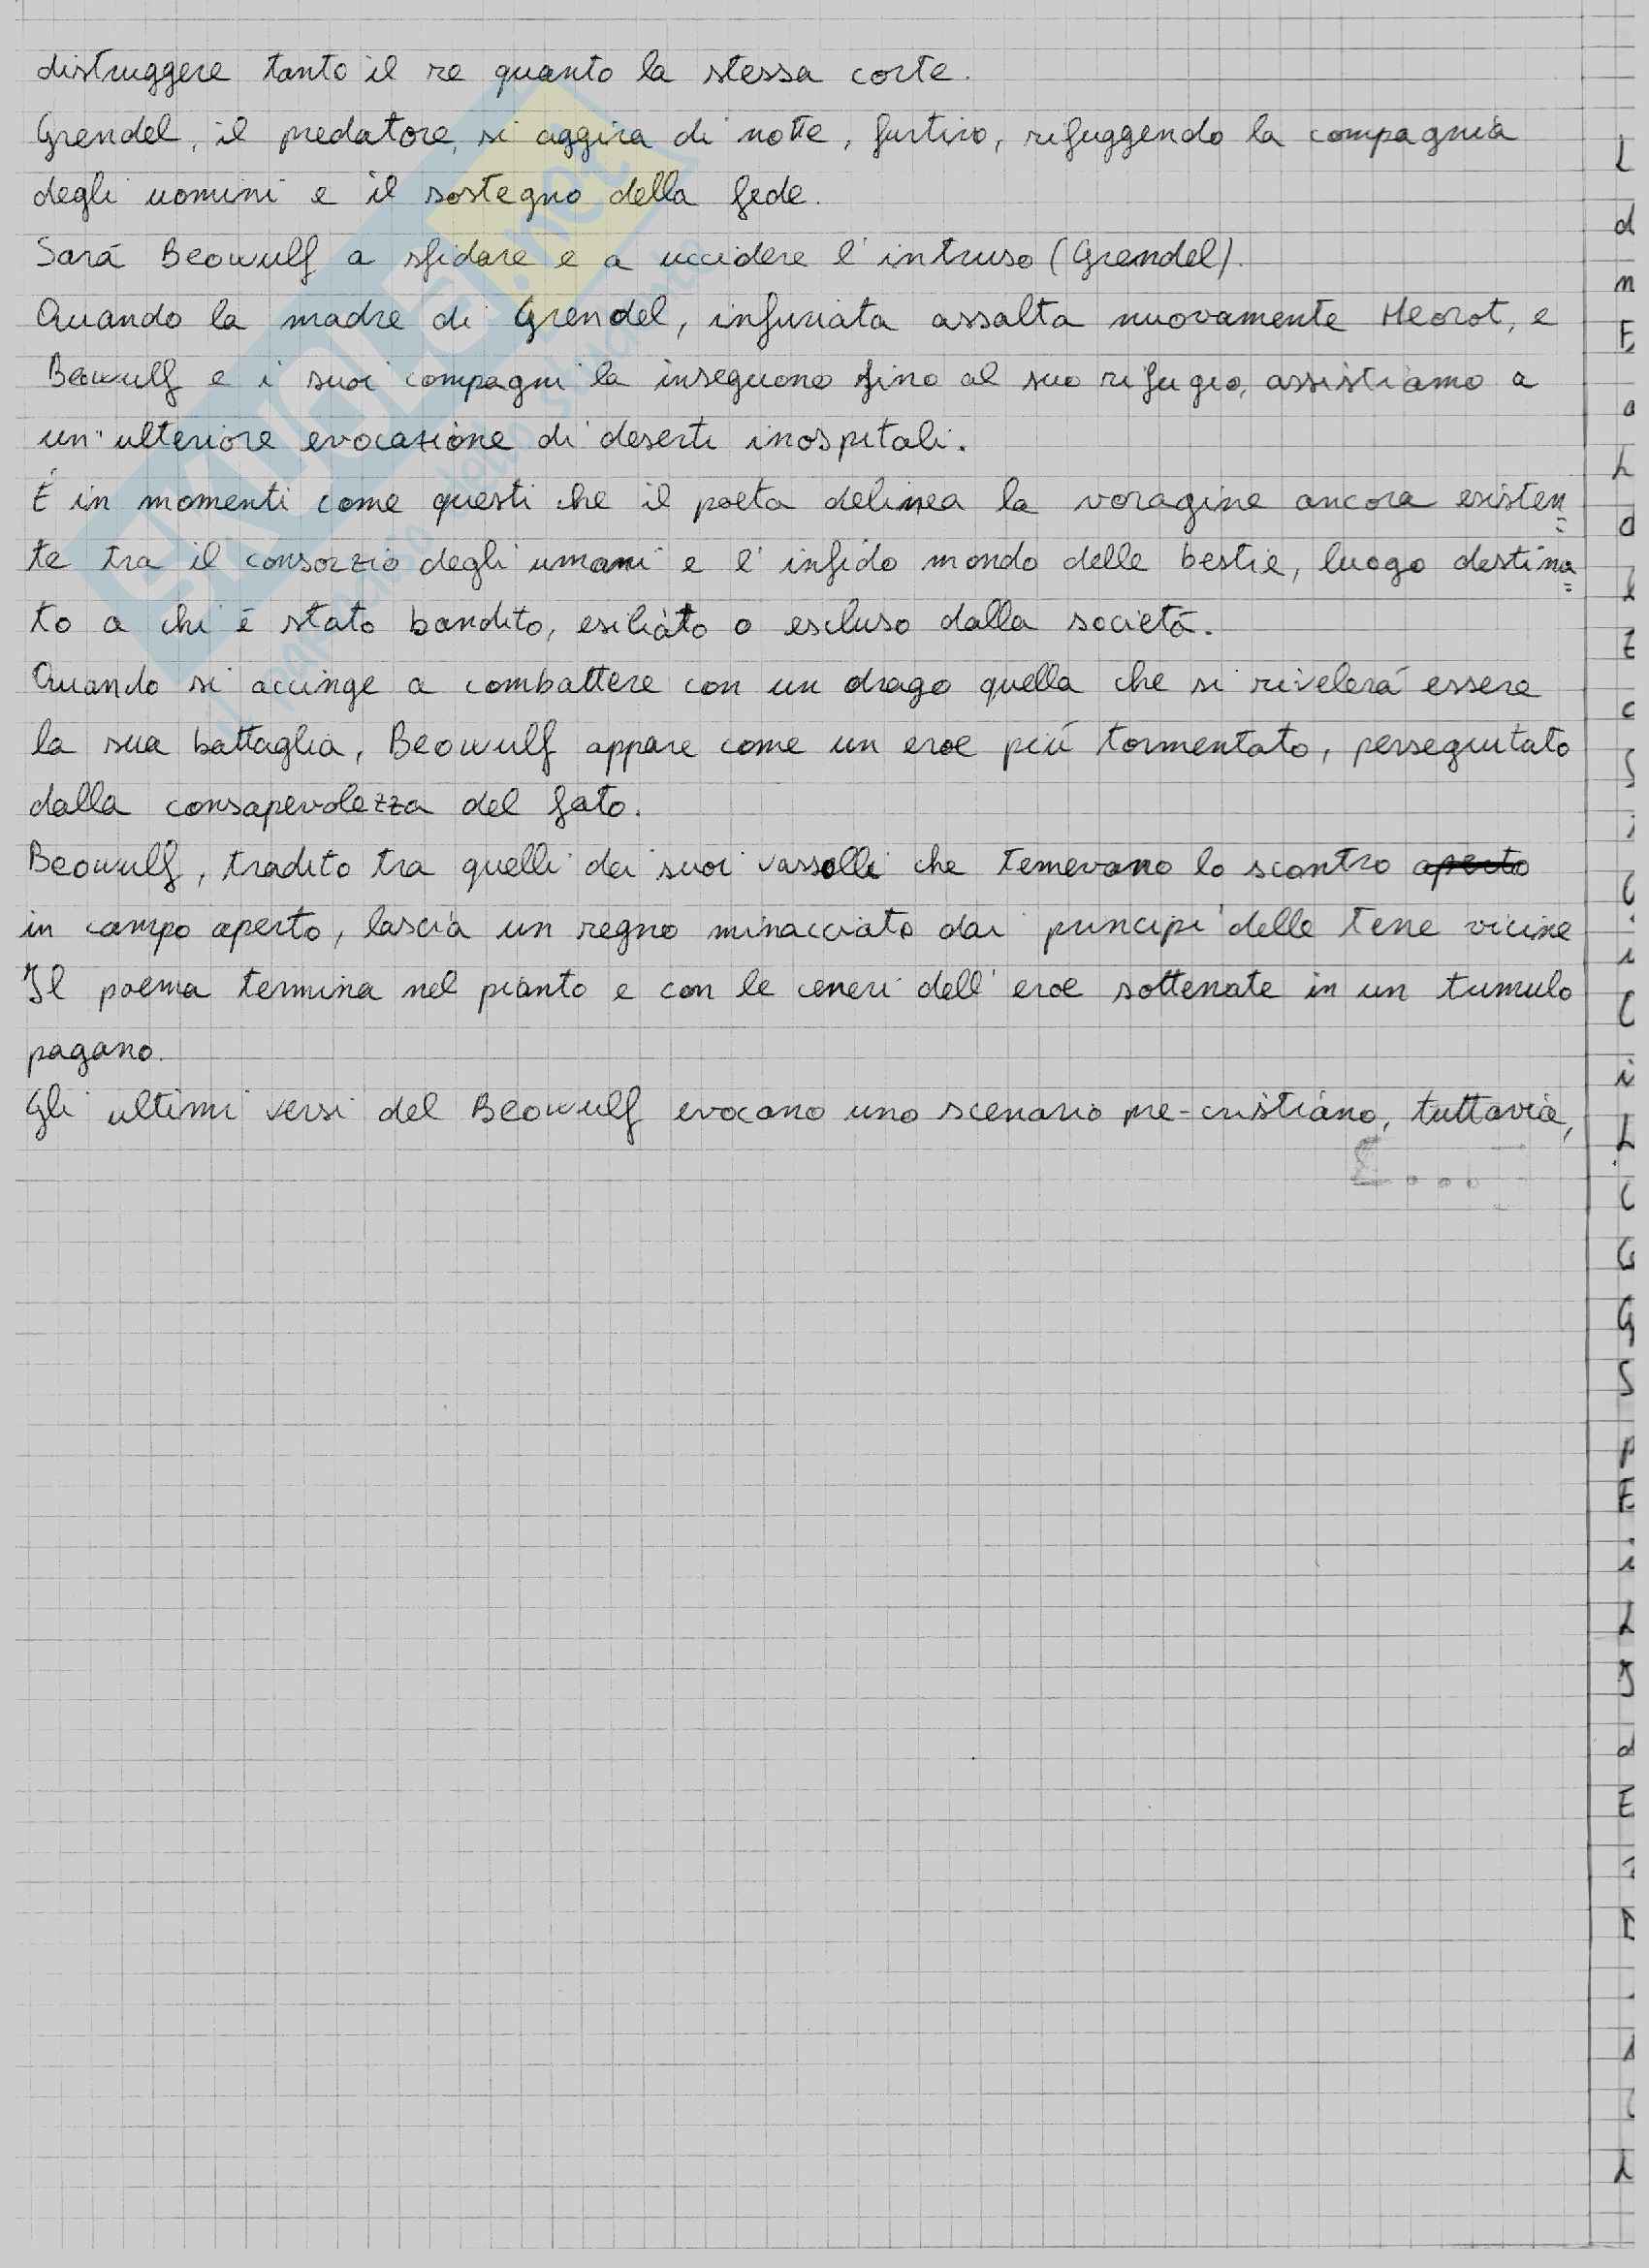 distruggere tanto il re quanto la stessa corte.
Grendel, il predatore, si aggira di notte, furtivo, rifuggendo la compagnia
degli uomini e il sostegno della fede.
Sará Beowulf a sfidare e a uccidere l'intruso (Grendel).
Quando la madre di Grendel, infuriata assalta nuovamente Heorot, e
Beowulf e i suoi compagni la inseguono fino al suo rifugio, assistiamo a
un'ulteriore evocazione di deserti inospitali.
É in momenti come questi che il poeta delinea la voragine ancora existen=
te tra il consorzio degli umani e l'infido mondo delle bestie, luogo destina=
to a chi é stato bandito, esiliato o escluso dalla societá.
Quando si accinge a combattere con un drago quella che si rivelerá essere
la sua battaglia, Beowulf appare come un eroe piú tormentato, perseguitato
dalla consapevolezza del fato.
Beowulf, tradito tra quelli dei suoi vassalli che temevano lo scontro aperto
in campo aperto, lascia un regno minacciato dai principi delle terre vicine
Il poema termina nel pianto e con le ceneri dell'eroe sotterrate in un tumulo
pagano.
Gli ultimi versi del Beowulf evocano uno scenario pre-cristiano, tuttavia,